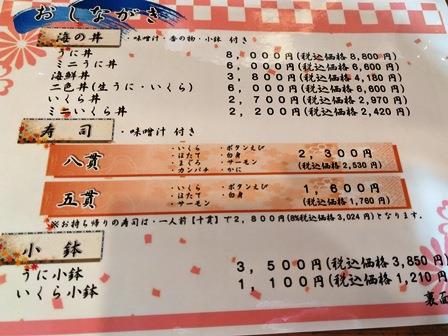 おしながき
海の丼 ・味噌汁・香の物・小鉢 付き
うに丼 8,000円(税込価格8,800円)
ミニうに丼 6,000円(税込価格6,600円)
海鮮丼 3,800円(税込価格4,180円)
二色丼(生うに・いくら) 6,000円(税込価格6,600円)
いくら丼 2,700円(税込価格2,970円)
ミニいくら丼 2,200円(税込価格2,420円)
寿司 ・味噌汁 付き
八貫 2,300円
・いくら ・ボタンえび
・ほたて ・白身
・まぐろ ・サーモン
・カンパチ ・かに
(税込価格2,530円)
五貫 1,600円
・いくら ・ボタンえび
・ほたて ・白身
・サーモン
(税込価格1,760円)
※お持ち帰りの寿司は・一人前【十貫】で2,800円(8%税込3,024円)となります。
小鉢
うに小鉢 3,500円(税込価格3,850円)
いくら小鉢 1,100円(税込価格1,210円)